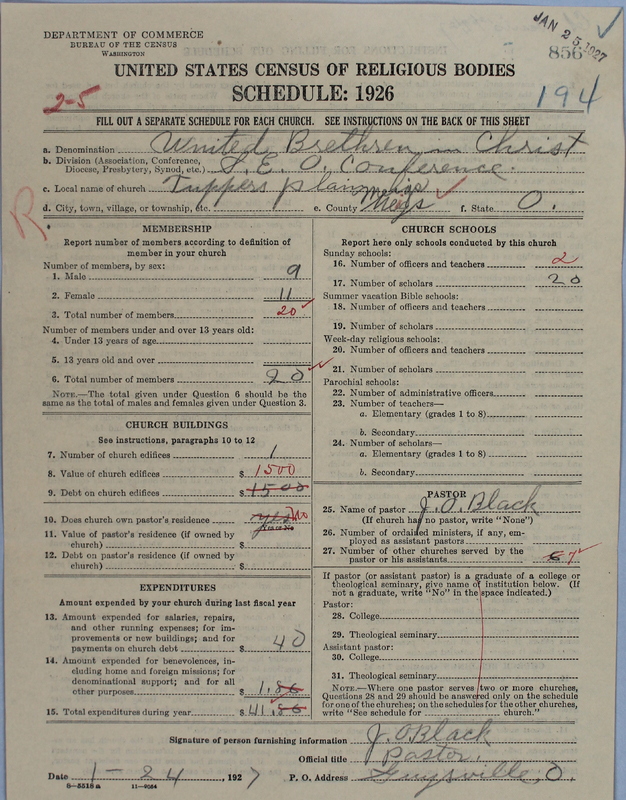 DEPARTMENT OF COMMERCE
BUREAU OF THE CENSUS
WASHINGTON
JAN 25 1927
856
UNITED STATES CENSUS OF RELIGIOUS BODIES
SCHEDULE: 1926
2-5
194
FILL OUT A SEPARATE SCHEDULE FOR EACH CHURCH. SEE INSTRUCTIONS ON THE BACK OF THIS SHEET
a. Denomination United Brethren in Christ
b. Division (Association, Conference,
Diocese, Presbytery, Synod, etc.) S. E. O. Conference.
c. Local name of church Tuppers plain
d. City, town, village, or township, etc. e. County Meigs Meigs f. State O.
R
MEMBERSHIP
Report number of members according to definition of
member in your church
Number of members, by sex:
1. Male 9
2. Female 11
3. Total number of members 20
Number of members under and over 13 years old:
4. Under 13 years of age
5. 13 years old and over
6. Total number of members 20
NOTE.—The total given under Question 6 should be
same as the total of males and females given under Question 3.
CHURCH BUILDINGS
See instructions, paragraphs 10 to 12
7. Number of church edifices 1
8. Value of church edifices $ 1500
9. Debt on church edifices $ 1500
10. Does church own pastor's residence yes no
Yes or No
11. Value of pastor's residence (if owned by
church) $
12. Debt on pastor's residence (if owned by
church) $
EXPENDITURES
Amount expended by your church during last fiscal year
13. Amount expended for salaries, repairs,
and other running expenses; for im-
provements or new buildings; and for
payments on church debt $ 40
14. Amount expended for benevolences, in-
cluding home and foreign missions; for
denominational support; and for all
other purposes $ 1.86
15. Total expenditures during year $ 41.86
CHURCH SCHOOLS
Report here only schools conducted by this church
Sunday schools:
16. Number of officers and teachers 2
17. Number of scholars 20
Summer vacation Bible schools:
18. Number of officers and teachers
19. Number of scholars
Week-day religious schools:
20. Number of officers and teachers
21. Number of scholars
Parochial schools:
22. Number of administrative officers
23. Number of teachers—
a. Elementary (grades 1 to 8)
b. Secondary
24. Number of scholars—
a. Elementary (grades 1 to 8)
b. Secondary
PASTOR
25. Name of pastor J. O. Black
(If church has no pastor, write "None")
26. Number of ordained ministers, if any, em-
ployed as assistant pastors
27. Number of other churches served by the
pastor or his assistants 6 7
If pastor (or assistant pastor) is a graduate of a college or
theological seminary, give name of institution below. (If
not a graduate, write "No" in the space indicated.)
Pastor:
28. College
29. Theological seminary
Assistant pastor:
30. College
31. Theological seminary
NOTE.—Where one pastor serves two or more churches,
Questions 28 and 29 should be answered only on the schedule
for one of the churches; on the schedules for the other churches,
write "See schedule for church."
Signature of person furnishing information J. O Black
Official title Pastor.
Date 1-24, 1927 P. O. Address Guysville, O.
8-5518a 11-9084